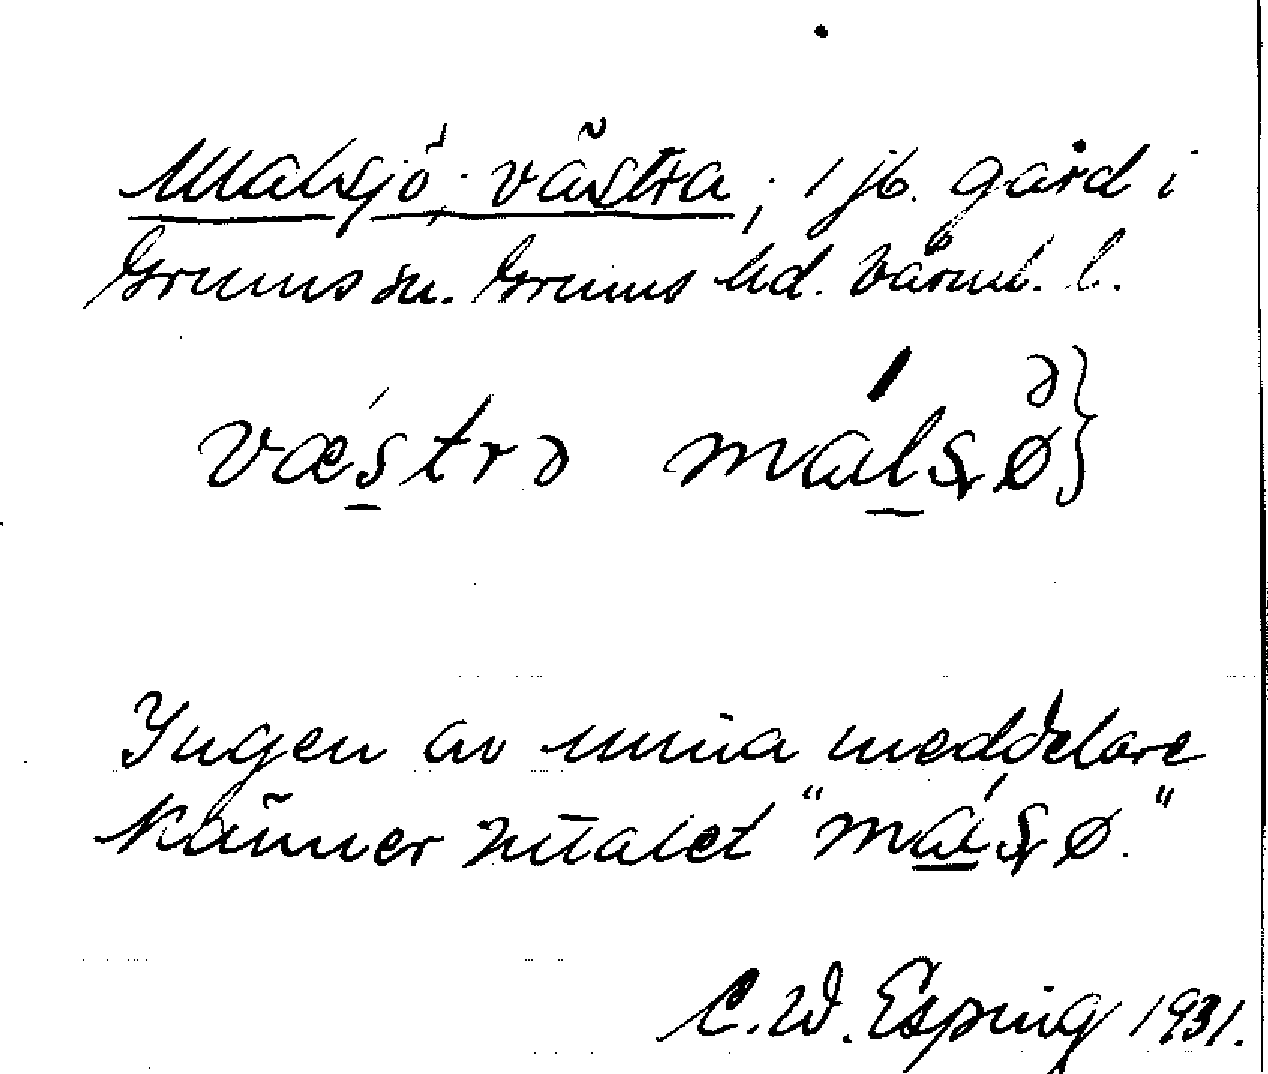 Malsjö, västra; 1 jb. gård i
Grums sn. Grums hd. Värml. l.
væstrə malsø ə}
Ingen av mina meddelare
känner uttalet "masø."
C. W. Esping 1931.